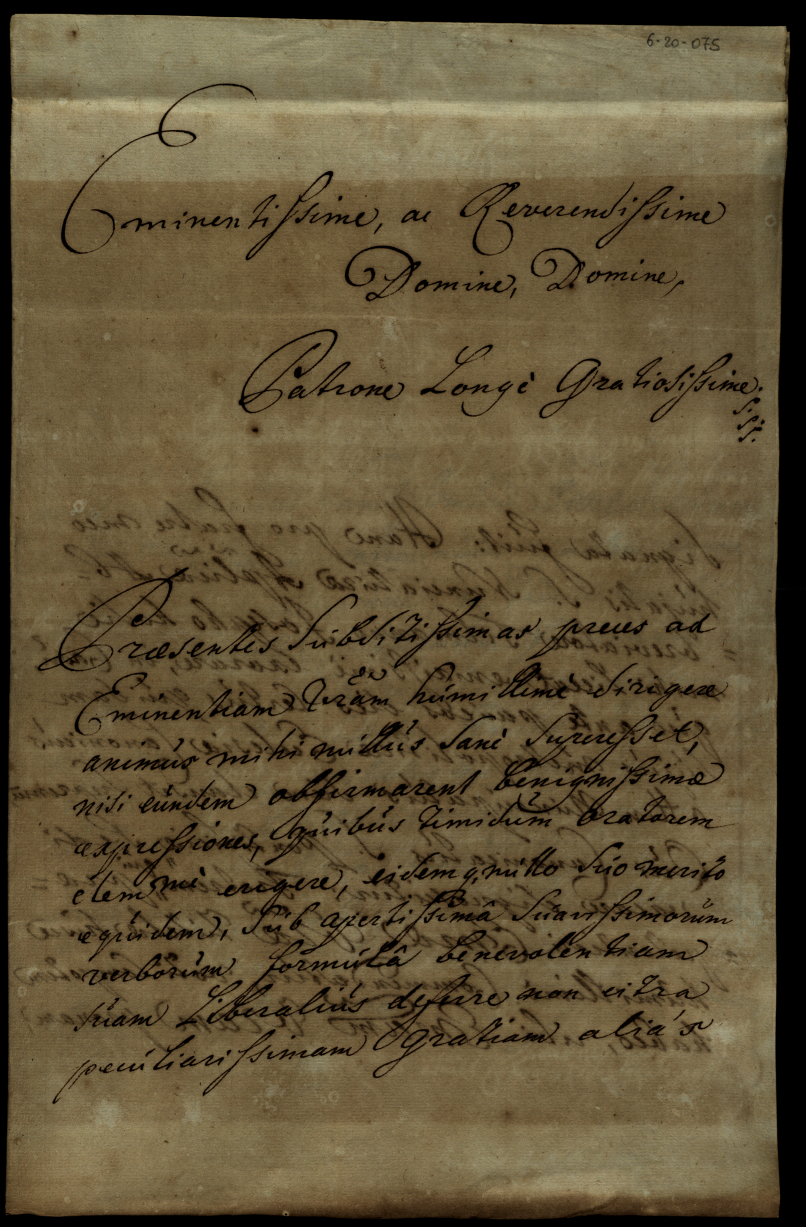 6-20-075
Eminentissime, ac Reverendissime
Domine, Domine,
Patrone Longè Gratiosissime.
Præsentes Subditissimas preces ad
Eminentiam Vrãm humillime dirigere
animus mihi nullus Sanè Superesset,
nisi eundem obfirmarent benignissimæ
expressiones, quibus timidum Oratorem
erigere, eidemq, nullo Suo merito
equidem, Sub apertissimâ Suavissimorum
verborum formulâ benevolentiam
suam Liberaliùs deferre non citra
peculiarissimam gratiam aliàs